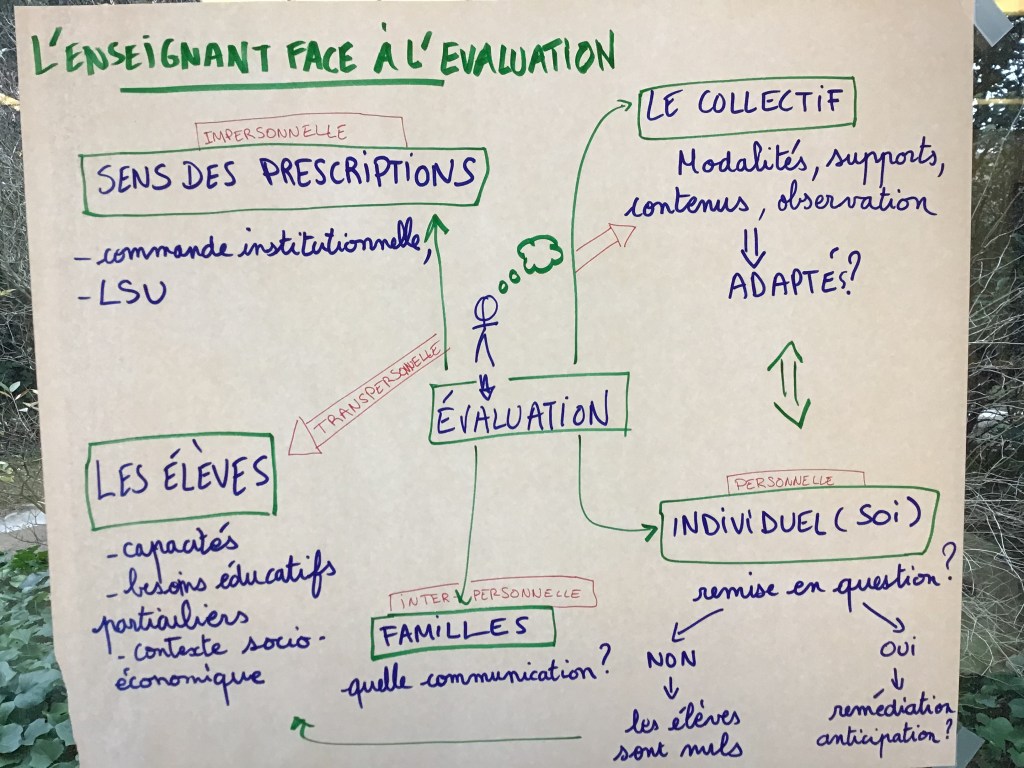 L'ENSEIGNANT FACE À L'EVALUATION
IMPERSONNELLE
SENS DES PRESCRIPTIONS
- commande institutionnelle,
- LSU
LE COLLECTIF
Modalités, supports,
contenus, observation
ADAPTÉS?
TRANSPERSONNELLE
ÉVALUATION
LES ÉLÈVES
- capacités
- besoins éducatifs
particuliers
- contexte socio-
économique
INTER PERSONNELLE
FAMILLES
quelle communication?
PERSONNELLE
INDIVIDUEL (SOI)
remise en question?
NON
les élèves
sont nuls
OUI
remédiation
anticipation?